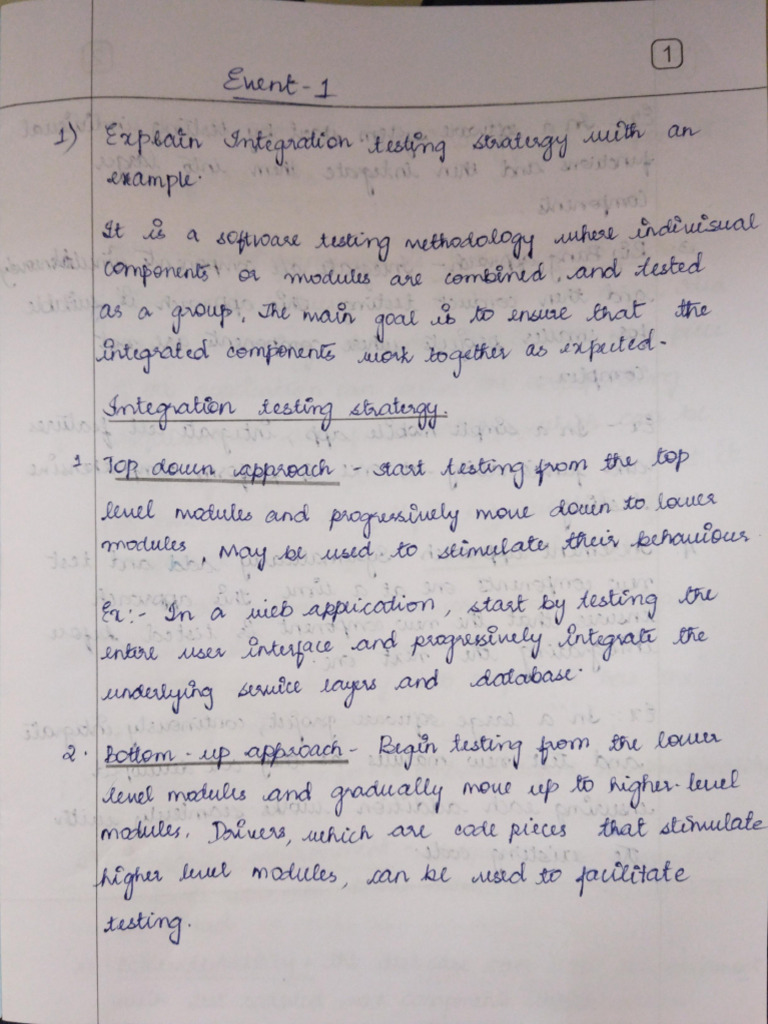 1
Event - 1
1) Explain Integration testing stratergy with an
example.
It is a software testing methodology where indivisual
components or modules are combined and tested
as a group. The main goal is to ensure that the
integrated components work together as expected.
Integration testing stratergy.
1 Top down approach - start testing from the top
level modules and progressively move down to lower
modules, may be used to stimulate their behaviour
Ex:- In a web appication, start by testing the
entire user interface and progressively integrate the
underlying service layers and database.
2. Bottom-up approach - Begin testing from the lower
level modules and gradually move up to higher-level
modules. Drivers, which are code pieces that stimulate
higher level modules, can be used to facilitate
testing.